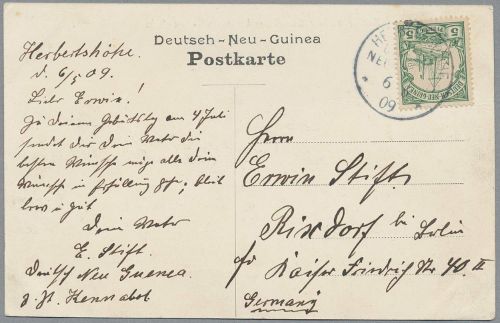 Deutsch-Neu-Guinea
Postkarte
Herbertshöhe
d. 6/5 09.
Lieber Erwin!
Zu Deinem Geburtstag am 4 Juli
sendet der Dein Vater die
besten Wünsche möge alle Dein
Wünsche in Erfüllung gehn, bleib
brav u gut
Dein Vater
E. Stift.
Deutsch Neu Guenea.
z. Zt.
Herrn
Erwin Stift.
Rixdorf bei Berlin
Kaiser Friedrich Str 40. II
Germany
6
09
5
5
DEUTSCH-NEU-GUINEA